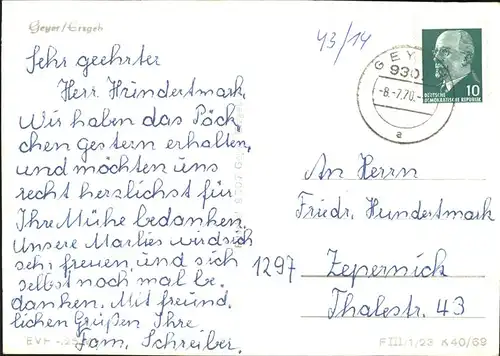 Geyer/Erzgeb
43/14
GEYER
930
-8.-7.70.-
a
10
DEUTSCHE
DEMOKRATISCHE REPUBLIK
Sehr geehrter
Herr Hundertmark.
Wir haben das Päck-
chen gestern erhalten,
und möchten uns
recht herzlichst für
Ihre Mühe bedanken.
Unsere Marlies wird sich
sehr freuen, und sich
selbst noch mal be-
danken. Mit freund-
lichen Grüßen Ihre
Fam. Schreiber.
An Herrn
Friedr. Hundertmark
1297 Zepernick
Thalestr. 43
EVP
F III/1/23 K 40/69